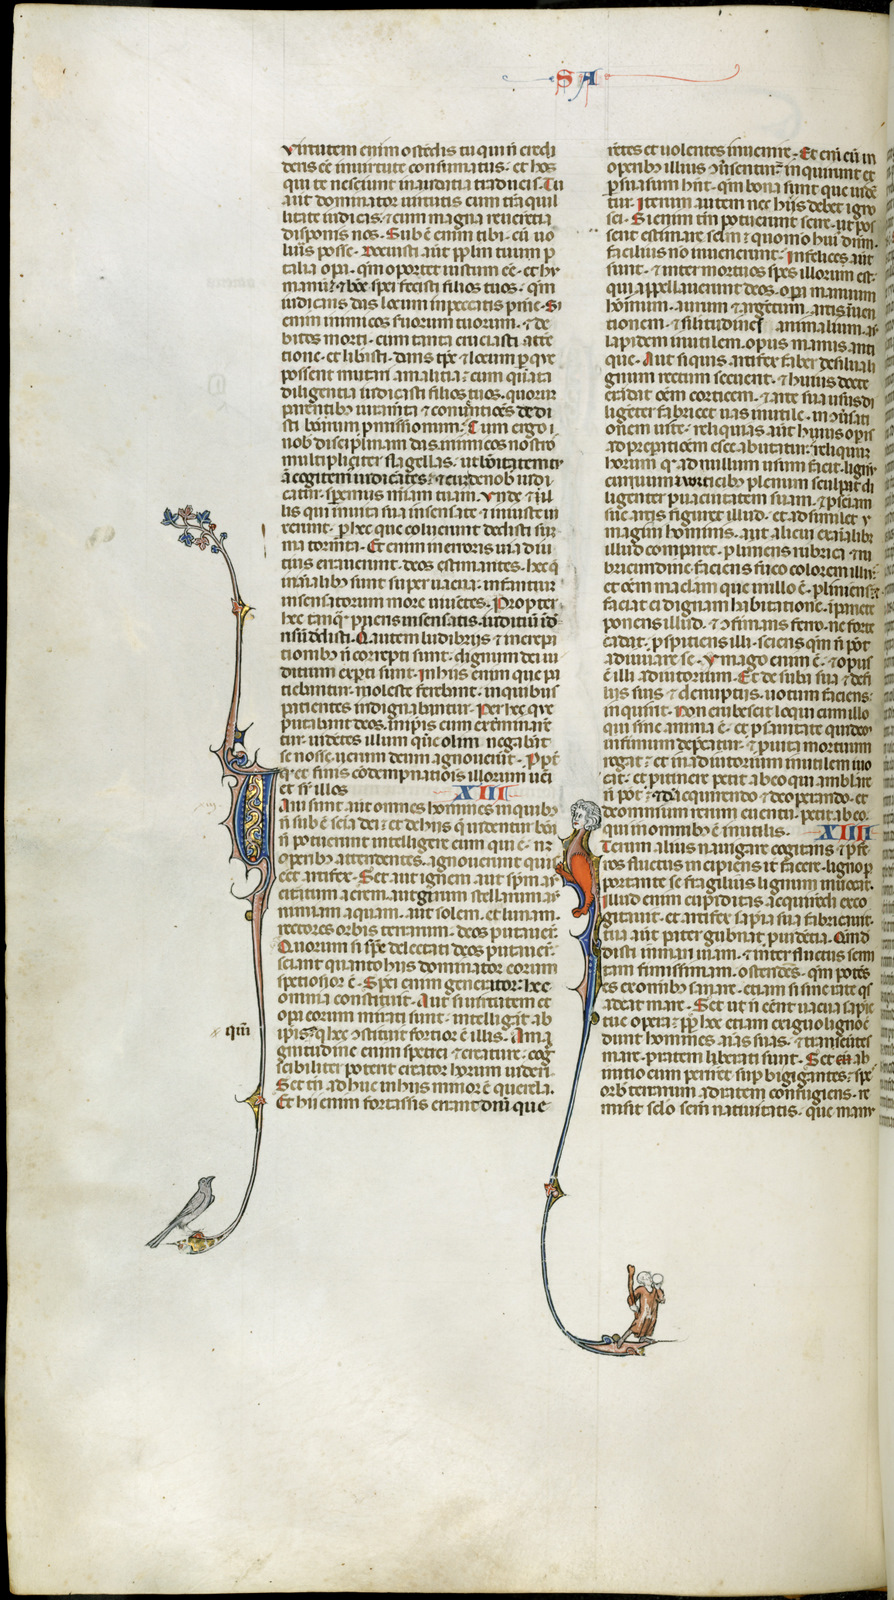 SA
Virtutem enim ostēdis tu qui nō credi
deris eē in virtute consumatus · et hos
qui te nesciunt in audatia traducis. Tu
aut dominator uirtutis cum trāquil
litate iudicas · ⁊ cum magna reuerētia
disponis nos · Sub ē enim tibi · cū uo
lūis posse · Docuisti aut pp̄lm tuum p̄
talia opa · qm̄ oportet iustum eē · et hu
manū · ⁊ bōe spei fecisti filios tuos · qm̄
iudicans das locum in peccatis pnīe · Si
enim inimicos suorum tuorum · ⁊ de
bitos morti · cum tanta cruciasti atte
tione · et libāsti · dans tp̄s ⁊ locum p que
possent mutari a malitia : cum quāta
diligentia iudicasti filios tuos · quorum
parētibꝫ iuramta ⁊ cōuentiōes dedi
sti bonarum pmissionum : Cum ergo
nob disciplinam das inimicos nostros
multipliciter flagellas · ut bōitatem tu
ā cogitem iudicātes · ⁊ cum de nob iudi
catur · speremus mīam tuam · Vnde ⁊ il
lis qui in uita sua insensate ⁊ iniuste ui
xerunt · p hec que coluerunt dedisti sum
ma tormta · Et enim in erroris uia diu
tius errauerunt · deos estimantes · hec q̄
in aīalibꝫ sunt superuacua · infantium
insensatorum more uiuētes · Propter
hec tanq̄ pueris insensatis · iuditiū in de
risū dedisti · Q autem ludibriis ⁊ increpa
tionibꝫ nō correpti sunt · dignum dei iu
ditium experti sunt · In hiis enim que pa
tiebantur · moleste ferebant · in quibus
patientes indignabantur · Per hec que
putabant deos · in ipīs cum exterminare
tur · uidetes illum quē olim negabāt
se nosse · uerum deum agnouerūt · Ppt
qꝫ et finis cōdempnationis illorum uēi
et sr̄ illos XIII
Uani sunt aut omnes homines in quibꝫ
nō sub ē scīa dei : et de hiis q̄ uidentur bōa
nō potuerunt intelligere eum qui ē · nꝫ
operibꝫ attendentes · agnouerunt quis
eēt artifex · Set aut ignem aut spm̄ aut
citatum aerem · aut girum stellarum aut
nimiam aquam · aut solem · et lunam ·
rectores orbis terrarum · deos putauer̄ ·
Quorum si spē delectati deos putauer̄ ·
sciant quanto hiis dominator eorum
spetiosior ē · Spei enim generator hec
omnia constituit · Aut si uirtutem et
opa eorum mirati sunt · intelligāt ab
ipis · q̄ hec ɔstituit fortior ē illis · A ma
qm̄
gnitudine enim spetiei ⁊ creature · cog
scibiliter poterit creator horum uideri
Set tn̄ ad huc in hiis minor ē querela ·
Et hii enim fortassis errant dm̄ que
rētes et uolentes inuenire · Et enī cū in
operibꝫ illius ɔuersentur · inquirunt et
psuasum hn̄t · qm̄ bona sunt que uidē
tur · Iterum autem nec hiis debet igno
sci · Si enim tm̄ potuerunt scire · ut pos
sent estimare sclm̄ : quomo hui dnm̄ ·
facilius nō inuenerunt · Infelices aut
sunt · ⁊ inter mortuos spes illorum est ·
qui appellauerunt deos · opa manuum
hōminum · aurum ⁊ argētum · artis īuen
tionem · ⁊ similitudines animalium · aut
lapidem inutilem · opus manus anti
que · Aut si quis artifex faber de silua li
gnum rectum secuerit · ⁊ huius docte
eradat oēm corticem · ⁊ arte sua usus di
ligēter fabricet uas inutile · in ɔuersati
onem uite · reliquias aut huius opis
ad preparatiōem esce abutatur · reliquum
horum q̄ ad nullum usum facit · lignū
curuum ⁊ uorticibꝫ plenum sculpat di
ligenter p uacuitatem suam · ⁊ p sciam
sue artis figuret illud · et adsimilet ỹ
magini hominis · aut alicui ex aīalibꝫ
illud comparet · pliniens rubrica · ⁊ ru
bicundine faciens fuco colorem illiꝰ
et oēm maclam que in illo ē · pliniens ·
faciat ei dignam habitatione · ī pariete
ponens illud · ⁊ ɔfirmans ferro · ne forte
cadat · pspitiens illi · sciens qm̄ nō pōt
adiuuare se · Ymago enim ē · ⁊ opus
ē illi adiutorium · Et de suba sua ⁊ de fi
liis suis ⁊ de nuptiis · uotum faciens :
inquirit · Non erubescit loqui cum illo
qui sine anima ē · et p sanitate quidem
infirmum depcatur · ⁊ p uita mortuum
rogat : et in adiutorium inutilem inuo
cat · et p itinere petit ab eo qui ambulare
nō pōt : ⁊ d̄ acquirendo ⁊ de operando · et
de omnium rerum euentu · petit ab eo
qui in omnibꝫ ē inutilis · XIIII
Iterum alius nauigare cogitans ⁊ p fe
ros fluctus incipiens iter facere · ligno p
portante se fragilius lignum inuocat ·
Illud enim cupiditas acquirēdi exco
gitauit · et artifex sapīa sua fabricauit ·
tua aut pater gubnat puidētia · Quoniam
dedisti in mari uiam · ⁊ inter fluctus semi
tam firmissimam · ostendēs · qm̄ potēs
es ex omnibꝫ sanare · etiam si sine rate qs
adeat mare · Set ut nō eēnt uacua sapīe
tue opera : pp hec etiam exiguo ligno cre
dunt homines aīas suas · ⁊ transeūtes
mare · p ratem liberati sunt · Set et ab
initio cum perirēt supbi gigantes : spes
orbꝫ terrarum ad ratem confugiens · re
misit sclo semē natiuitatis · que manu